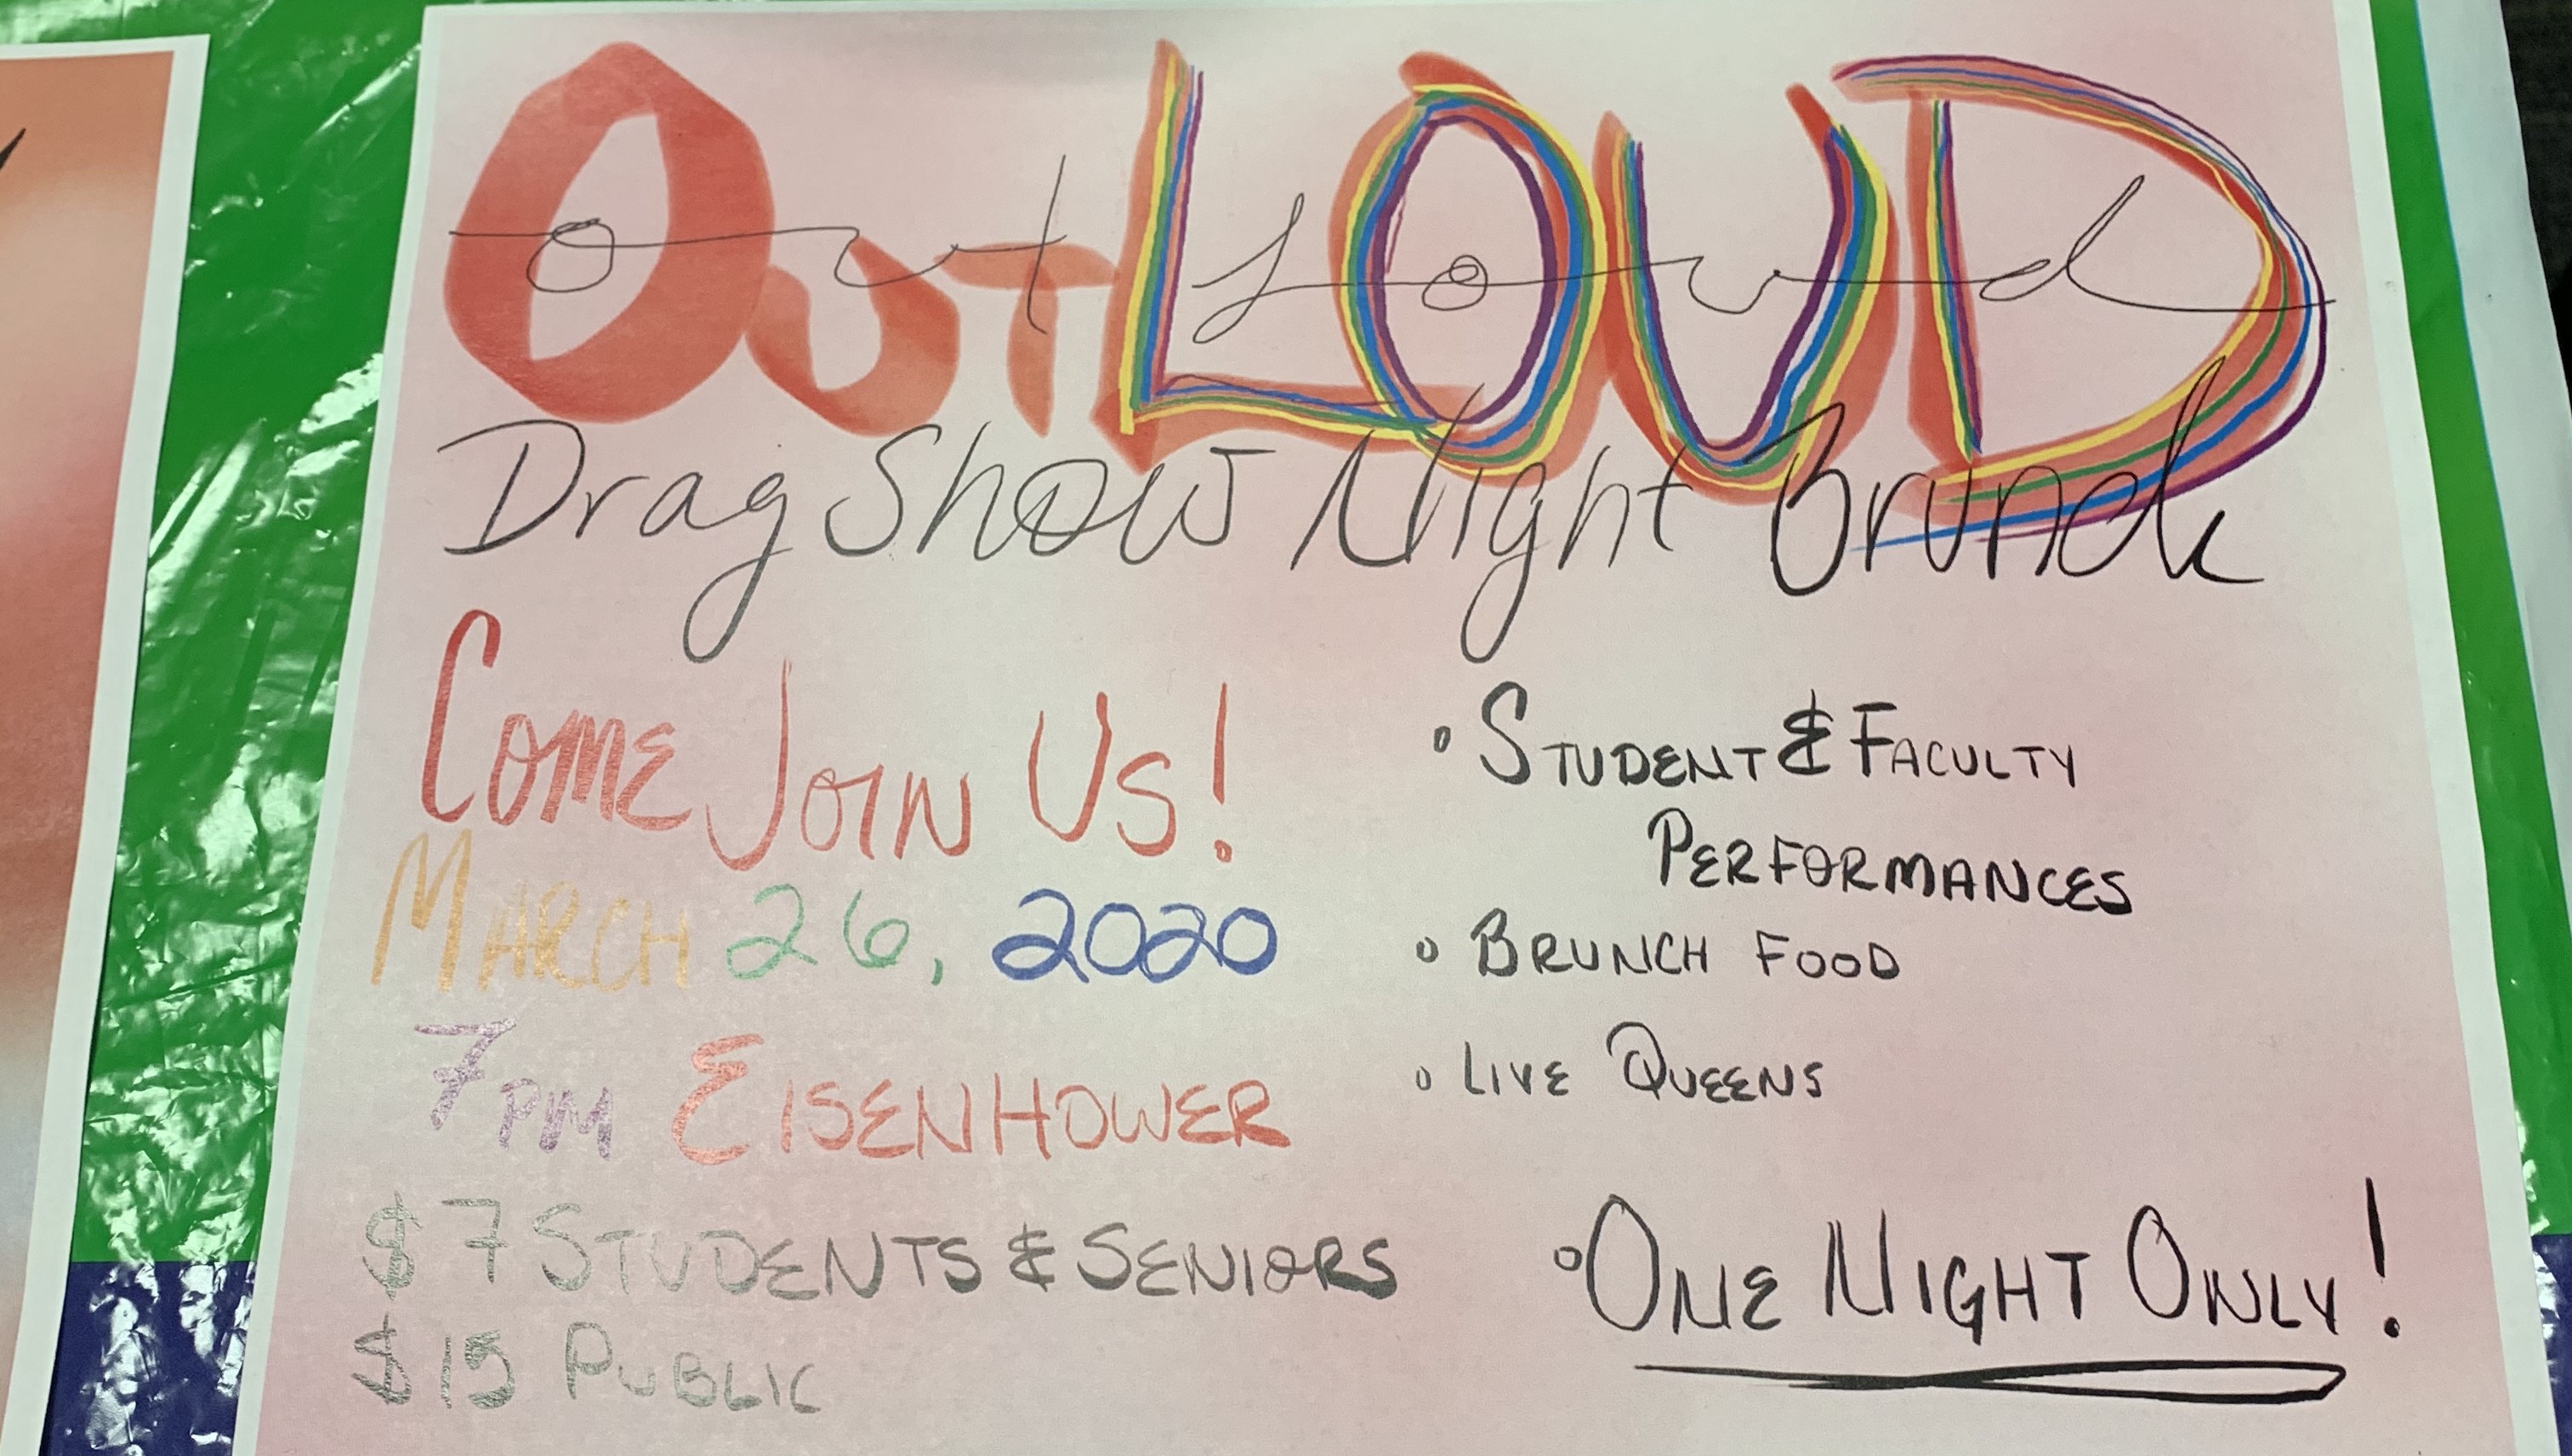 OutLOUD
out Loud
Drag Show Night Brunch
Come Join Us!
March 26, 2020
7pm Eisenhower
$7 Students & Seniors
$15 Public
• Student & Faculty
Performances
• Brunch Food
• Live Queens
• One Night Only!